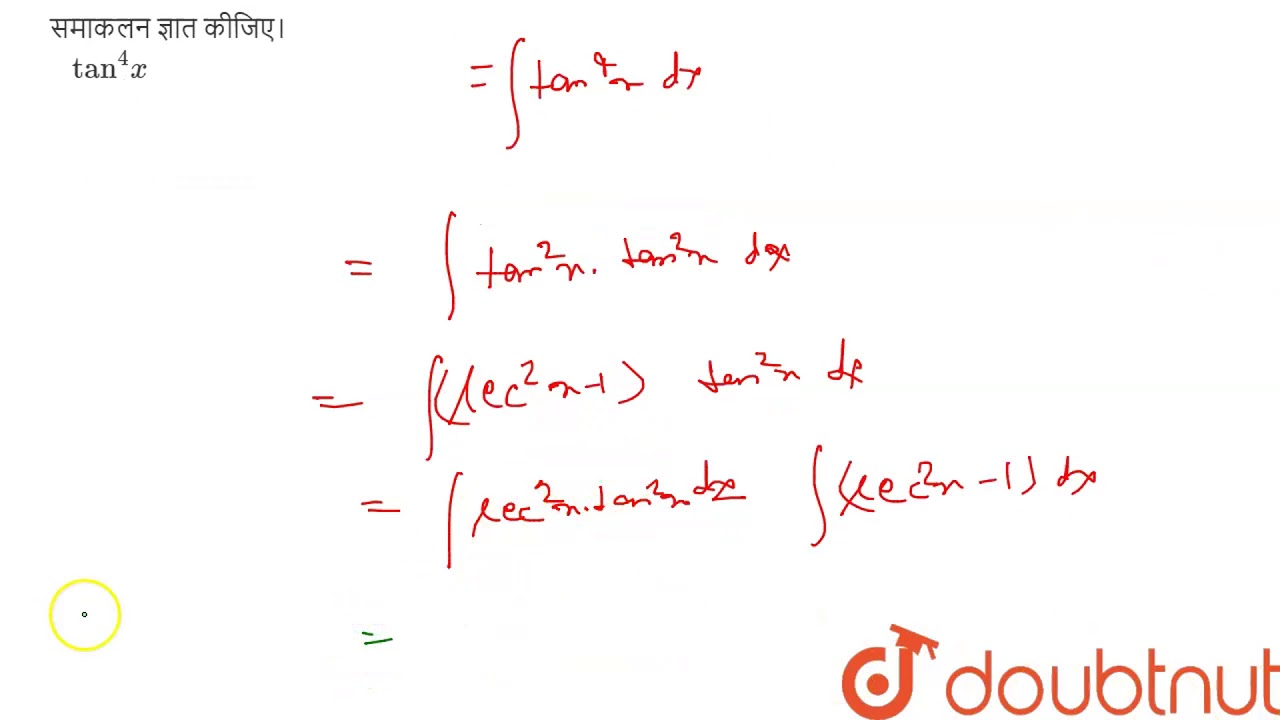 समाकलन ज्ञात कीजिए।
tan⁴x
= ∫ tan⁴x dx
= ∫ tan²x . tan²x dx
= ∫ (sec²x-1) tan²x dx
= ∫ sec²x . tan²x dx ∫ (sec²x-1) dx
=
doubtnut